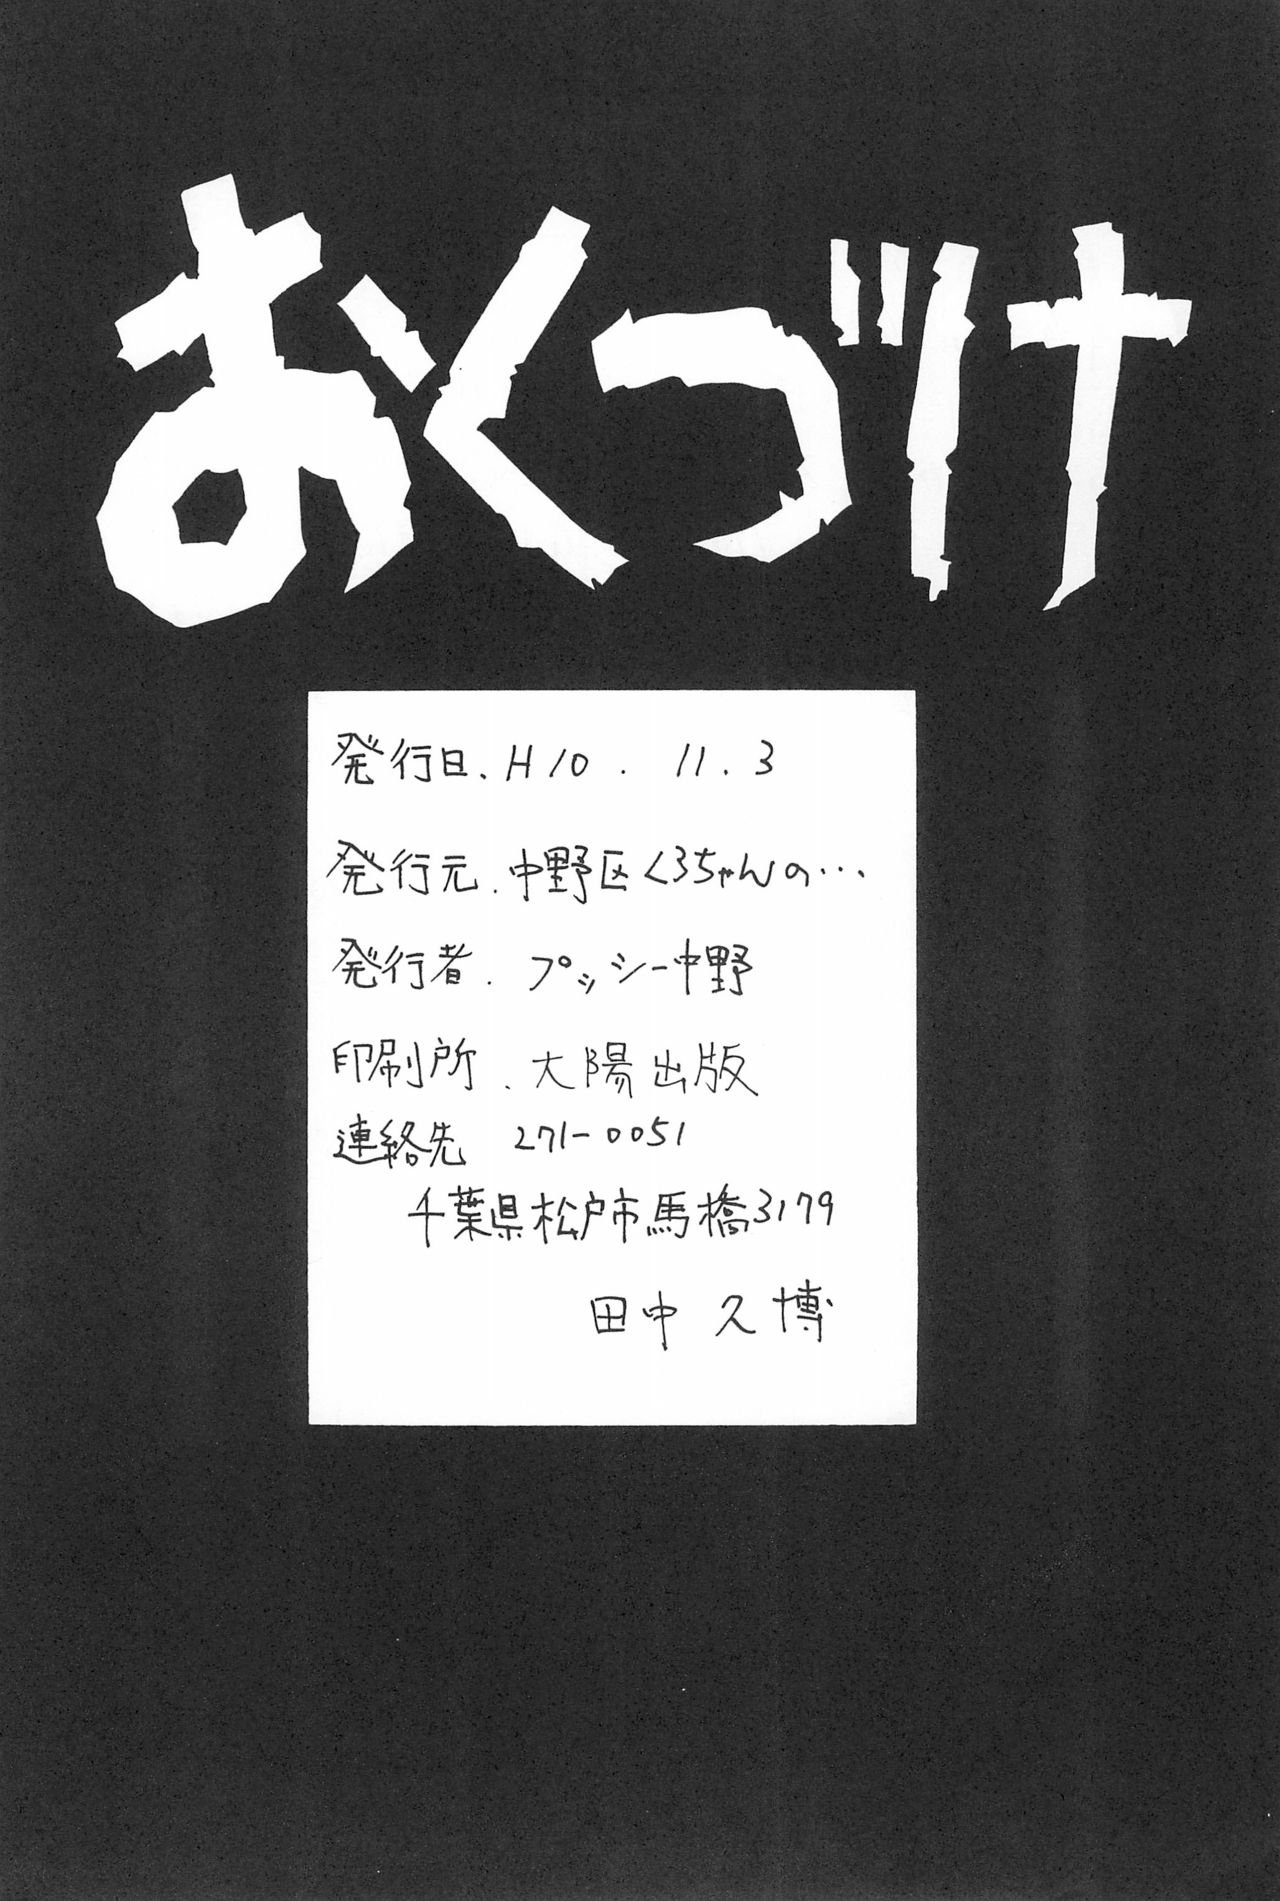 おくづけ
発行日. H10. 11. 3
発行元. 中野区くろちゃんの…
発行者. プッシー中野
印刷所. 大陽出版
連絡先 271-0051
千葉県松戸市馬橋3179
田中久博